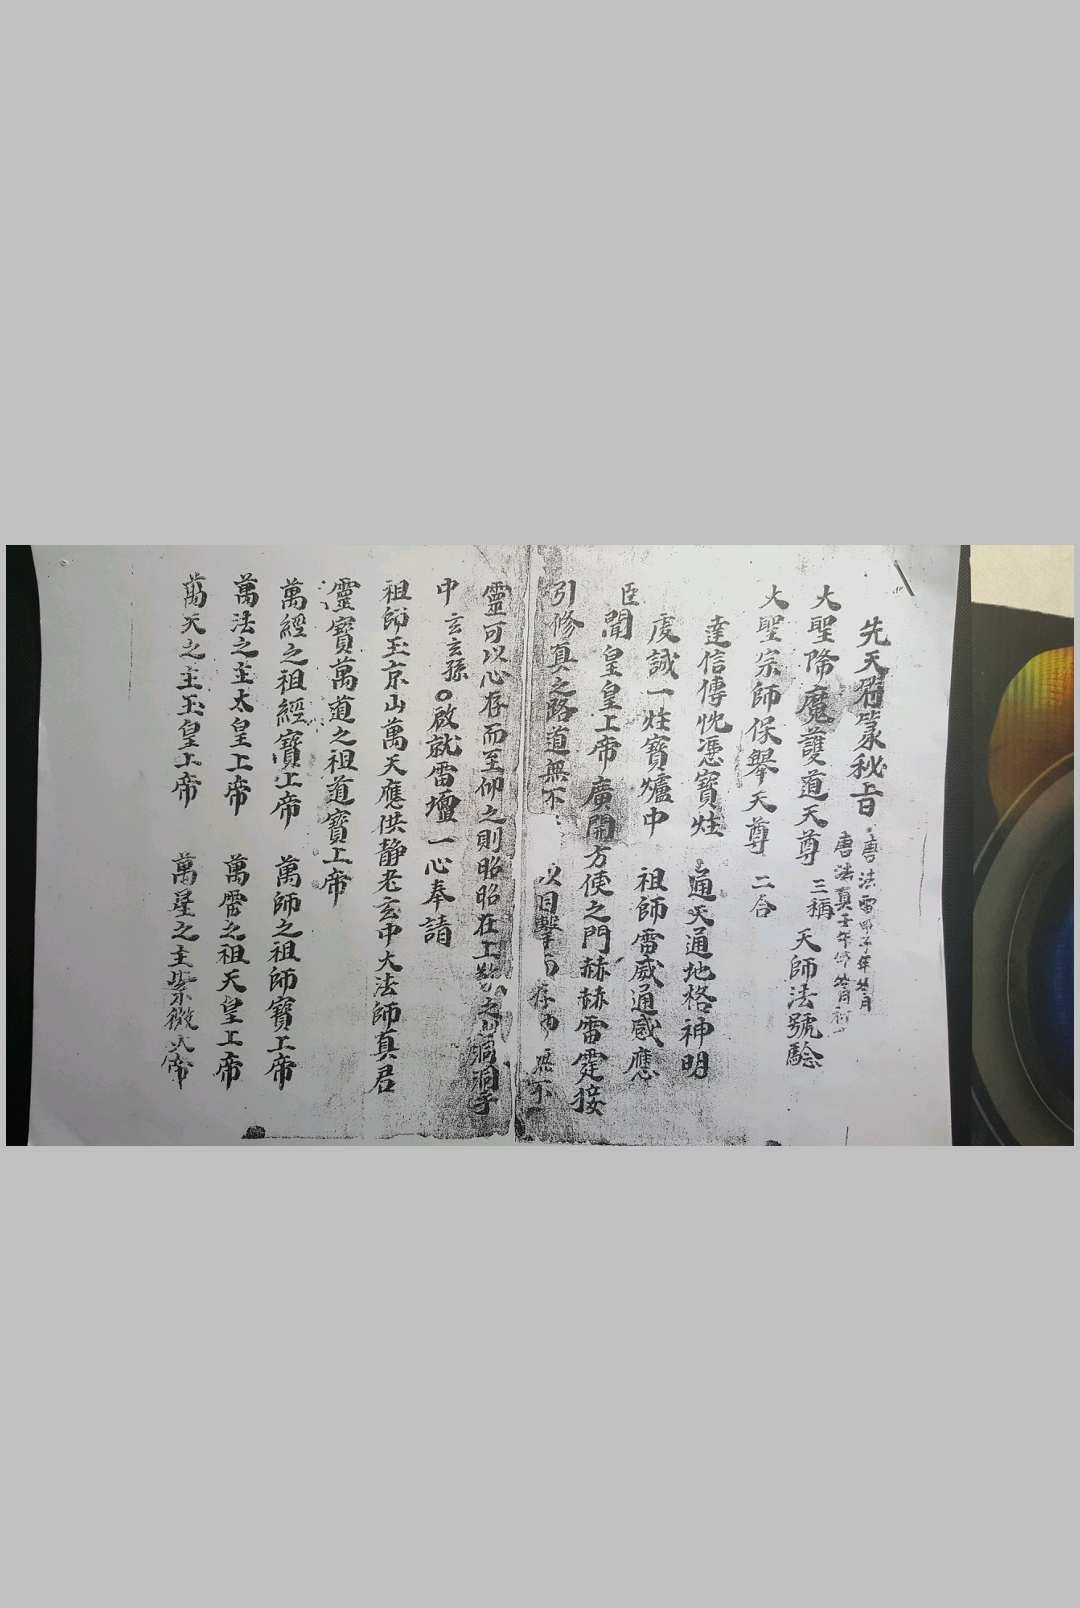 先天秘旨
唐法雷甲子年
唐法真壬年
大聖降魔護道天尊 三稱 天師法號驗
大聖宗師保舉天尊 二合
達信傳忱憑寶炷 通天通地格神明
虔誠一炷寶爐中 祖師雷威通感應
臣聞皇皇上帝廣開方便之門赫赫雷霆接
引修真之路道無不 以目擊而存 無不
靈可以心存而至仰之則昭昭在上 之 洞洞乎
中 玄玄孫 〇啟就雷壇一心奉請
祖師玉京山萬天應供靜老玄中大法師真君
靈寶萬道之祖道寶上帝
萬經之祖經寶上帝 萬師之祖師寶上帝
萬法之主太皇上帝 萬雷之祖天皇上帝
萬天之主玉皇上帝 萬星之主紫微大帝